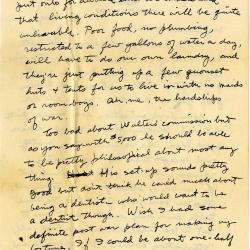 just
that living conditions there will be quite
unlivable. Poor food, no plumbing,
restricted to a few gallons of water a day,
will have to do our own laundry, and
they're just putting up a few quonset
huts & tents for us to live in with no maids
or room boys. Ah me, the hardships
of war.
Too bad about Walters commission but
as you say with $5000 he should be able
to be pretty philosophical about most any
thing. His set up sounds pretty
good but don't think he could much about
being a dentist. who would want to be
a dentist though. Wish I had some
definite post war plan for making my
fortune. If I could be about one-half